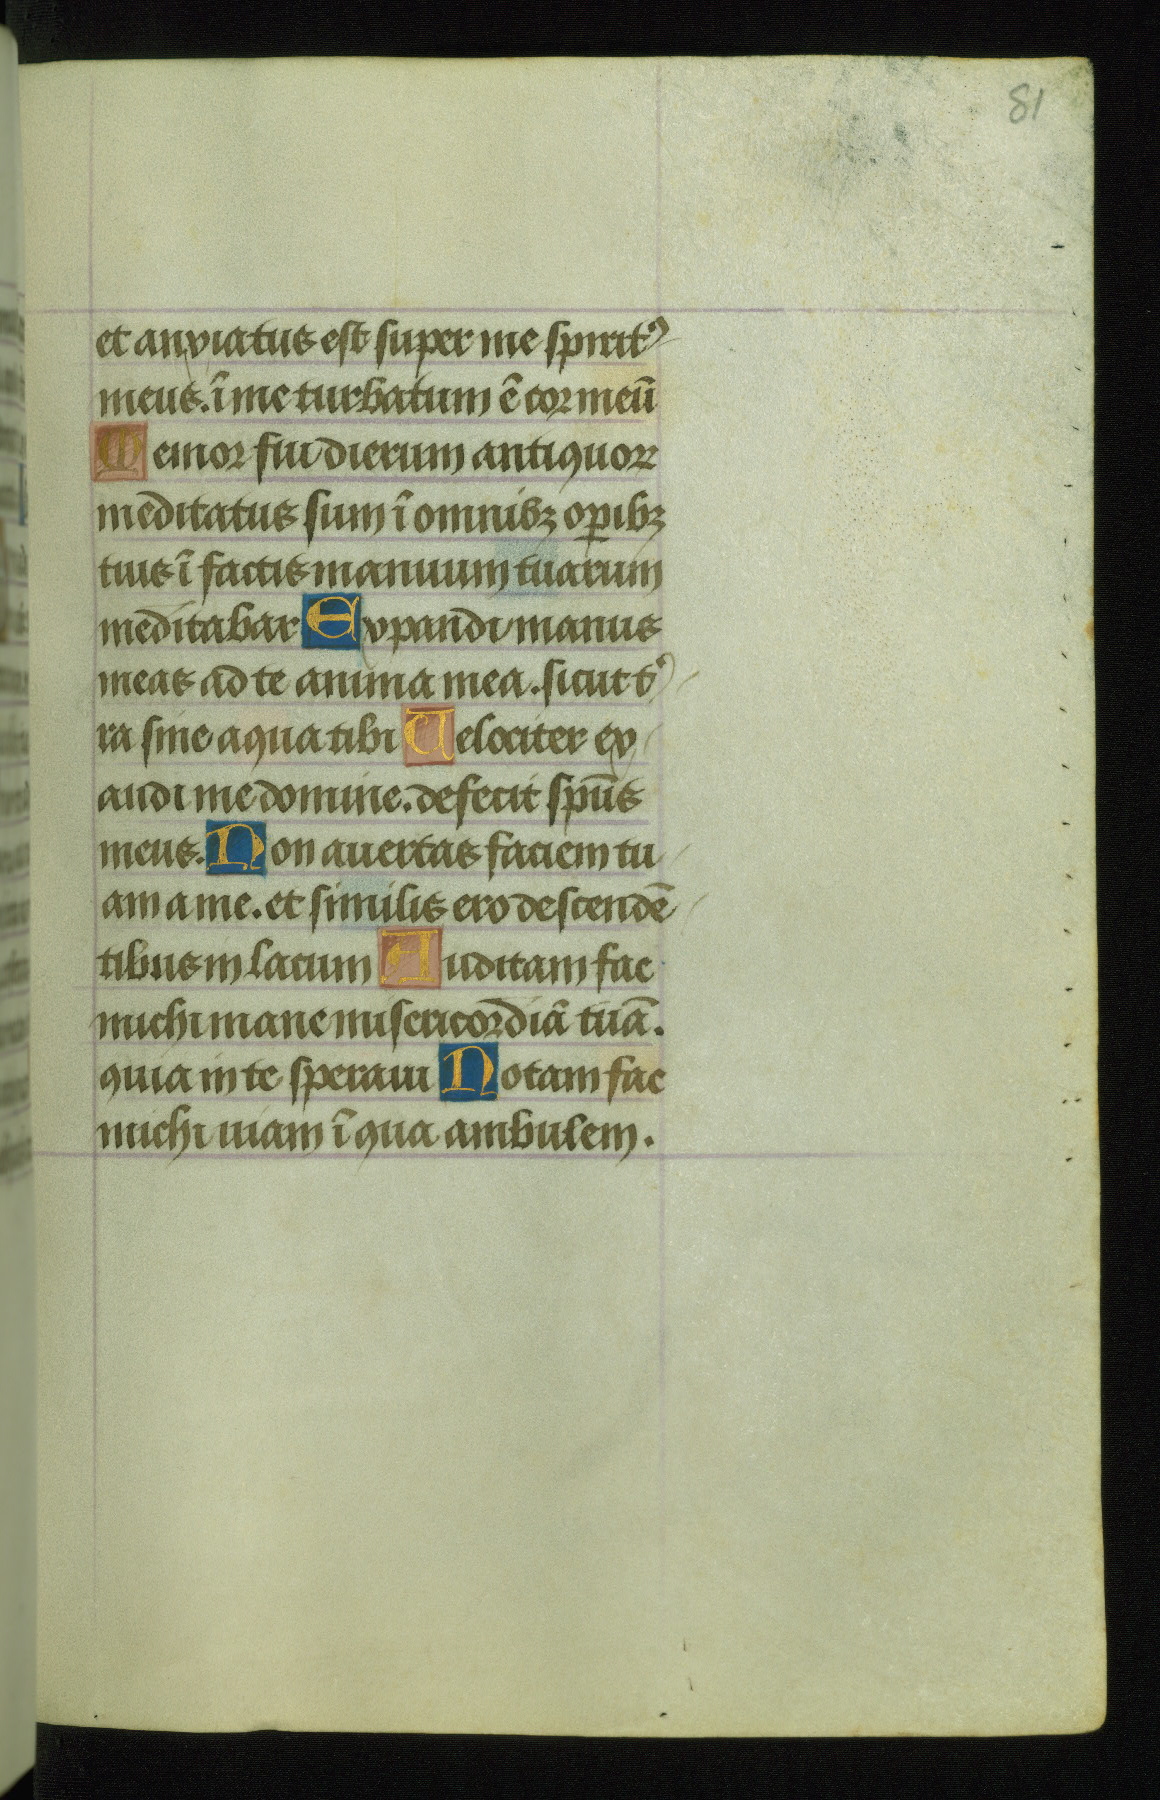 81
et anxiatus est super me spirit⁹
meus. ī me turbatum ē cor meū
Memor fui dierum antiquoꝝ
meditatus sum ī omnibꝫ oꝑibꝫ
tuis ī factis manuum tuarum
meditabar Expandi manus
meas ad te anima mea. sicut t᾽
ra sine aqua tibi Uelociter ex
audi me domine. defecit spūs
meus. Non auertas faciem tu
am a me. et similis ero descendē
tibus in lacum Auditam fac
michi mane misericordiā tuā.
quia in te speraui Notam fac
michi uiam ī qua ambulem.